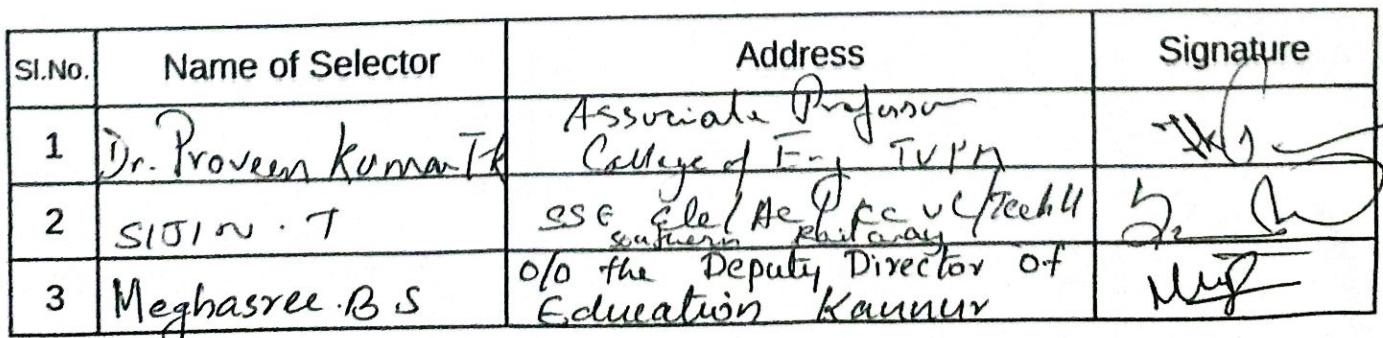 Sl.No. Name of Selector Address Signature
1 Dr. Proveen Kumar TK Associate Professor
College of Eng TVPM
2 SIJIN . T SSE Ele/Ac
Southern Railway
3 Meghasree . B S O/o the Deputy Director of
Education Kannur